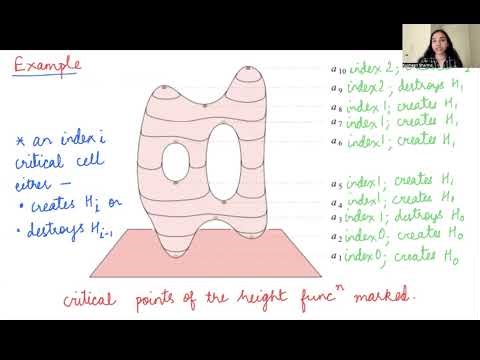 Example
* an index i
critical cell
either —
• creates Hi or
• destroys Hi-1
a10 index 2;
a9 index 2; destroys H1
a8 index 1; creates H1
a7 index 1; creates H1
a6 index 1; creates H1
a5 index 1; creates H1
a4 index 1; creates H1
a3 index 1; destroys H0
a2 index 0; creates H0
a1 index 0; creates H0
critical points of the height funcⁿ marked.